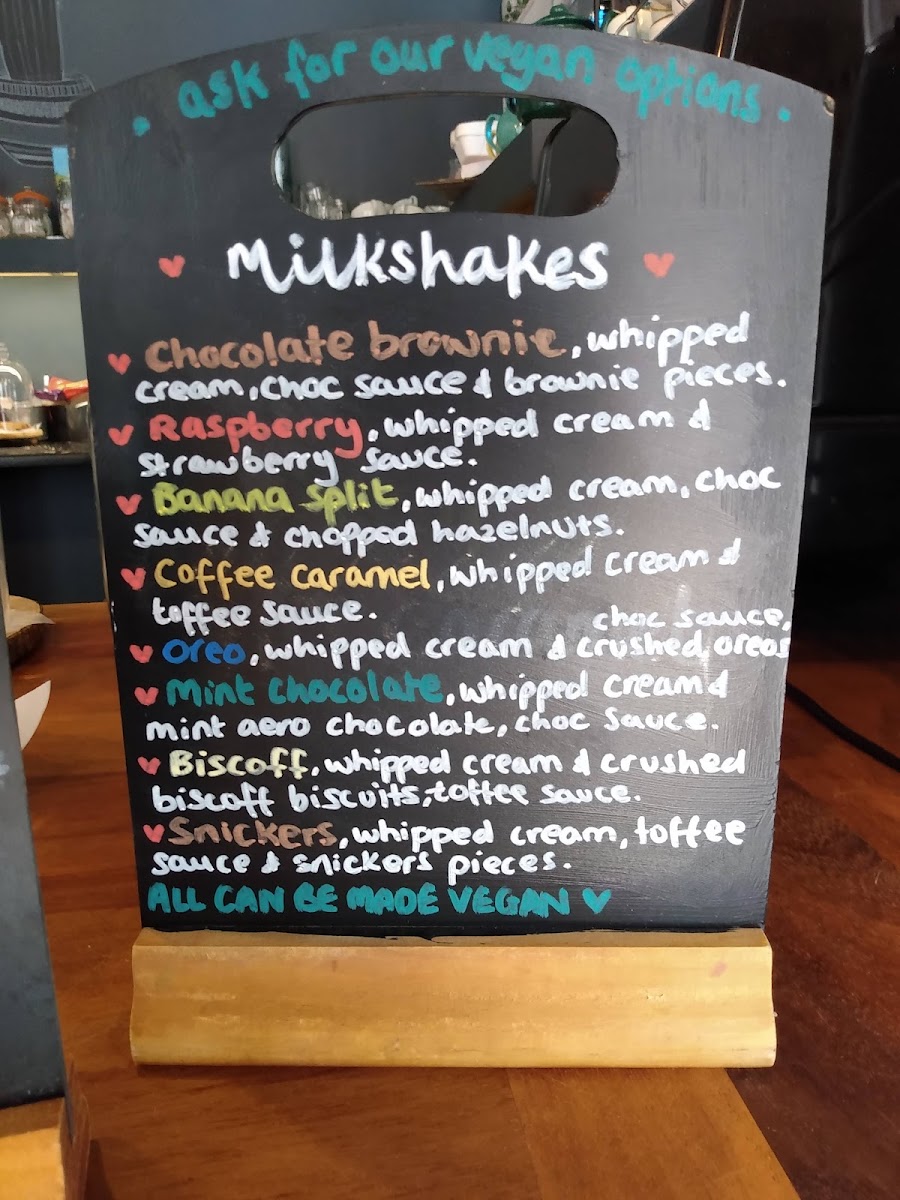 • ask for our vegan options •
♥ Milkshakes ♥
♥ Chocolate brownie, whipped
cream, choc sauce & brownie pieces.
♥ Raspberry, whipped cream &
strawberry sauce.
♥ Banana split, whipped cream, choc
sauce & chopped hazelnuts.
♥ Coffee caramel, whipped cream &
toffee sauce.
choc sauce,
♥ Oreo, whipped cream & crushed oreos
♥ Mint chocolate, whipped cream &
mint aero chocolate, choc sauce.
♥ Biscoff, whipped cream & crushed
biscoff biscuits, toffee sauce.
♥ Snickers, whipped cream, toffee
sauce & snickers pieces.
ALL CAN BE MADE VEGAN ♥